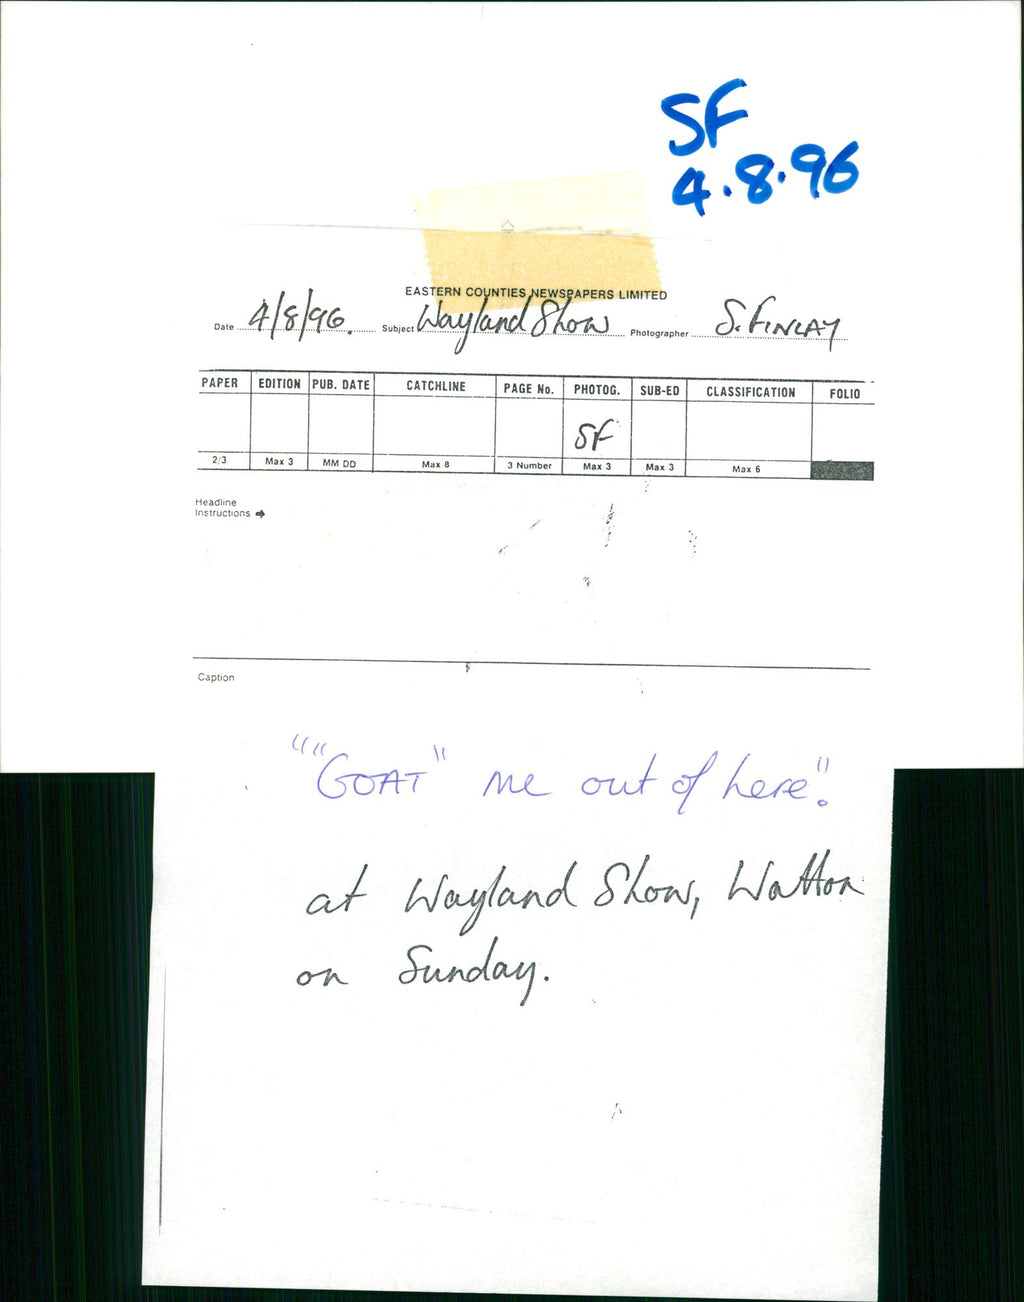 SF
4.8.96
EASTERN COUNTIES NEWSPAPERS LIMITED
Date 4/8/96. Subject Wayland Show Photographer S. FINLAY
PAPER EDITION PUB. DATE CATCHLINE PAGE No. PHOTOG. SUB-ED CLASSIFICATION FOLIO
SF
2/3 Max 3 MM DD Max 8 3 Number Max 3 Max 3 Max 6
Headline
Instructions
Caption
""GOAT" me out of here".
at Wayland Show, Watton
on Sunday.